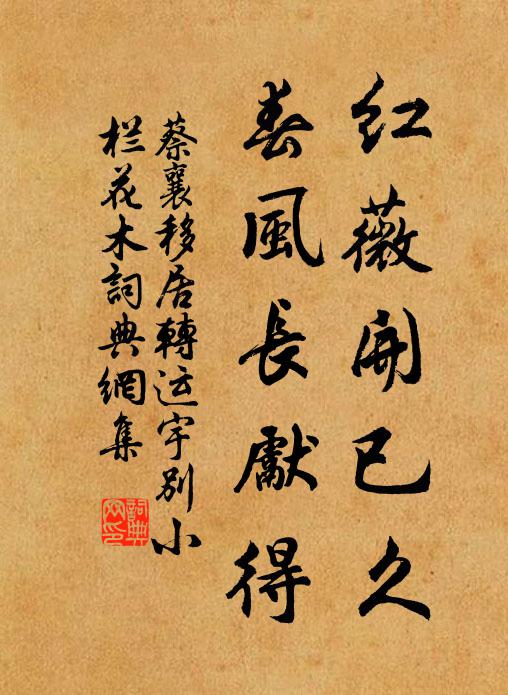 红薇開已久
春風長獻得
蔡襄移居轉运宇別小
栏花木詞典網集
詞典网印